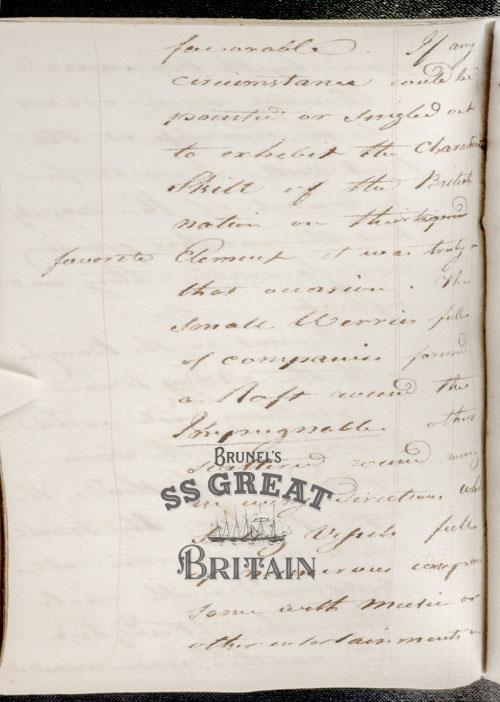 favorable. If any
circumstance could be
pointed or singled out
to exhibit the Character
Skill of the British
nation on their
favorite Element it was truly
that occasion. The
small Werries full
of companies formed
a Raft round the
Impregnable others
scattered round many
in every directions
Vessels full
of numerous
some with music or
other entertainments
BRUNEL'S
SS GREAT
BRITAIN